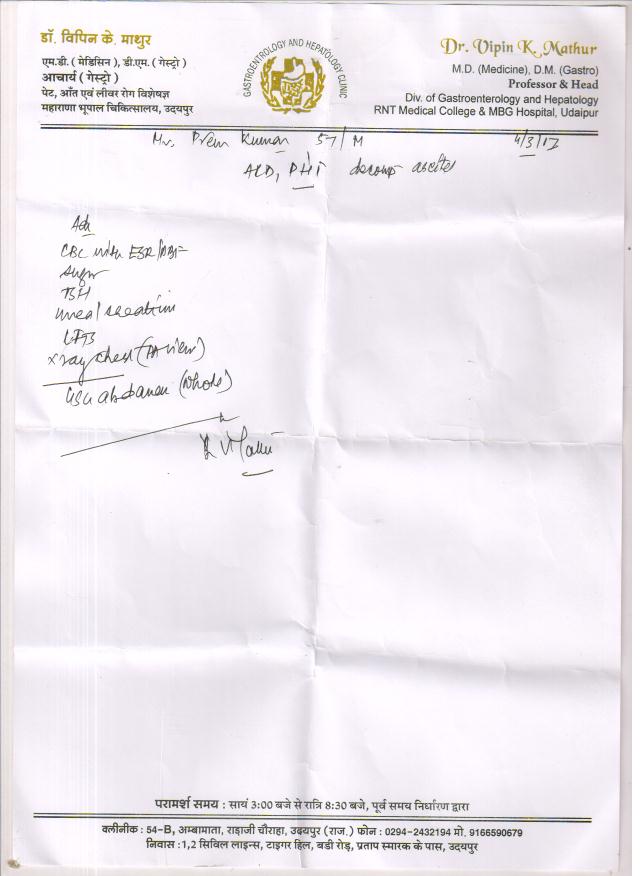 डॉ. विपिन के. माथुर
एम.डी. ( मेडिसिन ), डी.एम. ( गेस्ट्रो )
आचार्य ( गेस्ट्रो )
पेट, आँत एवं लीवर रोग विशेषज्ञ
महाराणा भूपाल चिकित्सालय, उदयपुर
GASTROENTROLOGY AND HEPATOLOGY CLINIC
Dr. Vipin K. Mathur
M.D. (Medicine), D.M. (Gastro)
Professor & Head
Div. of Gastroenterology and Hepatology
RNT Medical College & MBG Hospital, Udaipur
Mr. Prem Kumar 57/M 4/3/17
ALD, PHT decomp ascites
Adv
CBC with ESR/
Sugar
TSH
Urea/
LFTs
X ray chest (PA view)
USG abdomen (whole)
परामर्श समय : सायं 3:00 बजे से रात्रि 8:30 बजे, पूर्व समय निर्धारण द्वारा
क्लीनीक : 54-B, अम्बामाता, राड़ाजी चौराहा, उदयपुर (राज.) फोन : 0294-2432194 मो. 9166590679
निवास : 1,2 सिविल लाइन्स, टाइगर हिल, बडी रोड़, प्रताप स्मारक के पास, उदयपुर